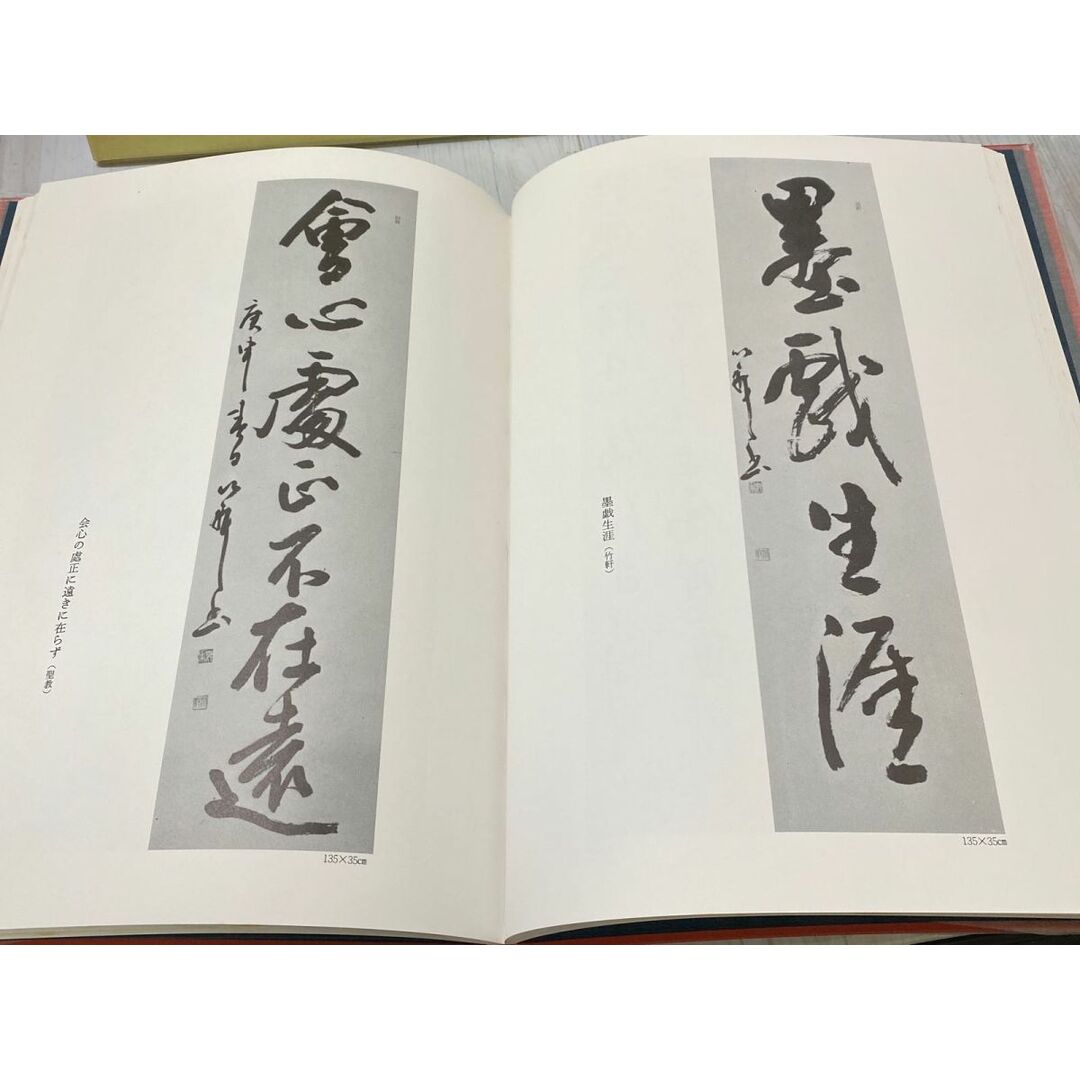 墨戯生涯
墨戯生涯（竹軒）
135×35㎝
會心處正不在遠
庚申春日
会心の處正に遠きに在らず（聖教）
135×35㎝